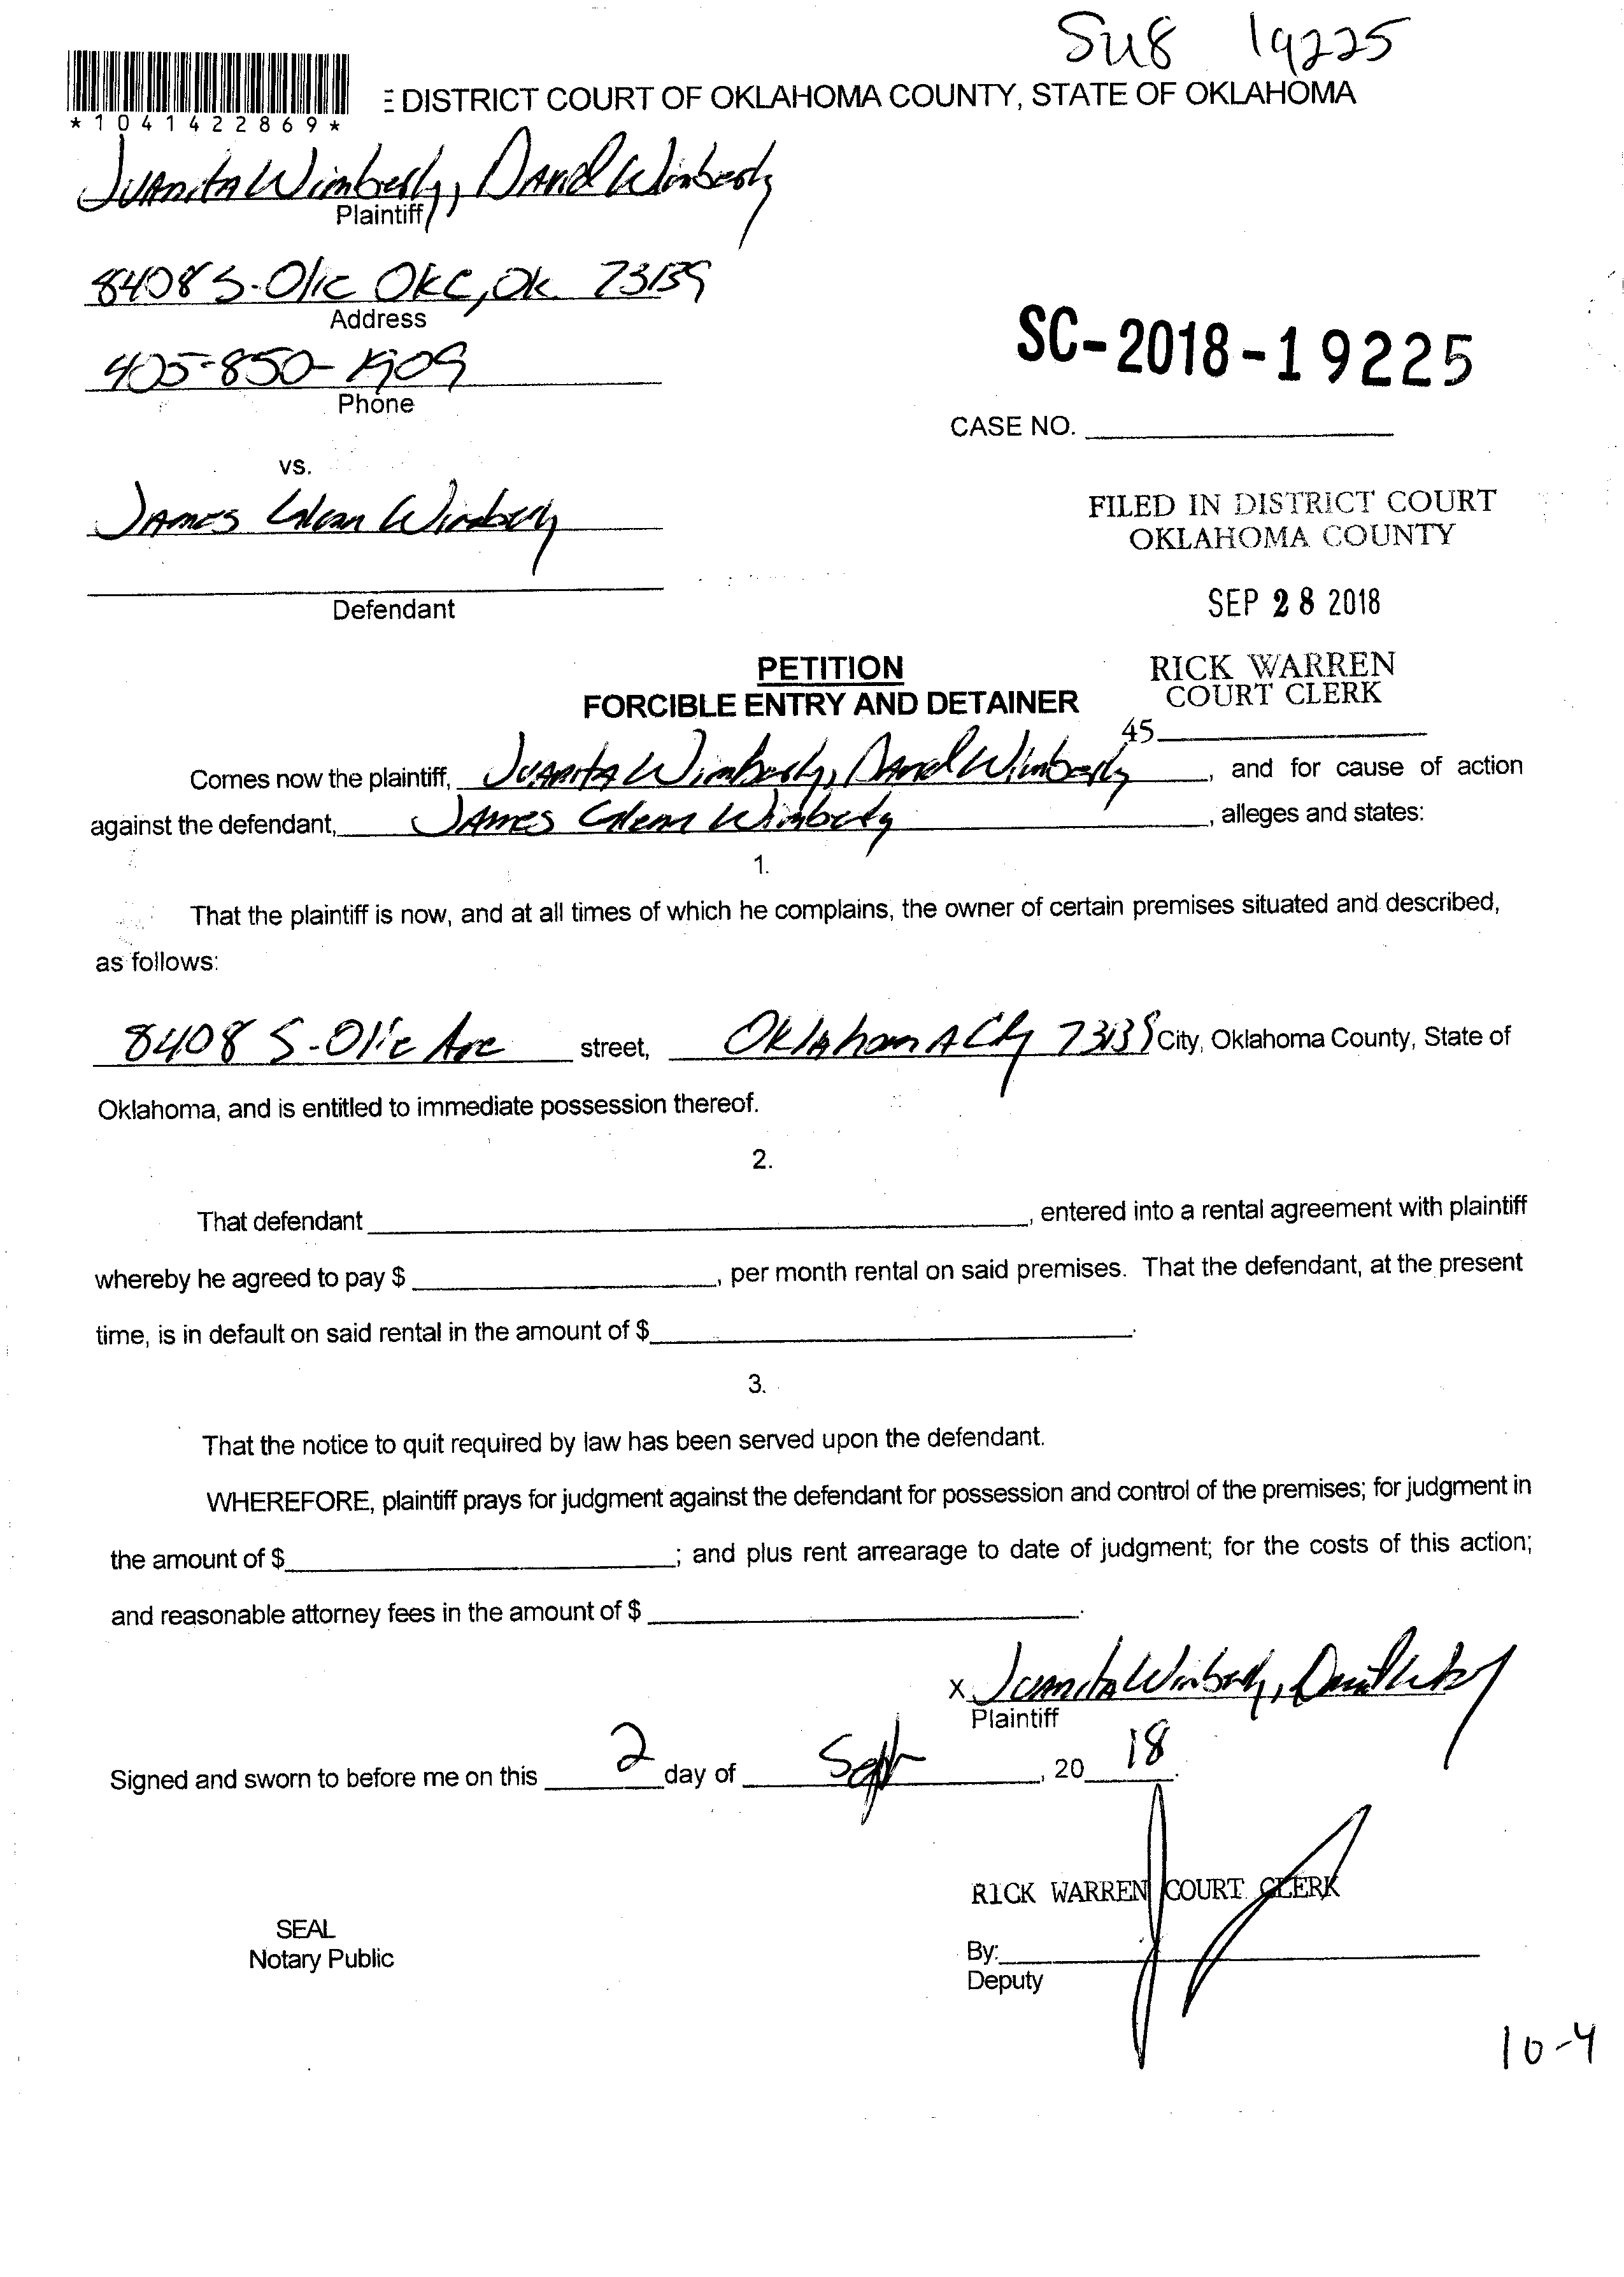 SU8 19225
*1041422869*
E DISTRICT COURT OF OKLAHOMA COUNTY, STATE OF OKLAHOMA
Juanita Wimberly, David Wimberly
Plaintiff
8408 S. Olie OKC, OK. 73139
Address
405-850-1909
Phone
SC-2018-19225
CASE NO.
vs.
James Glenn Wimberly
FILED IN DISTRICT COURT
OKLAHOMA COUNTY
Defendant
SEP 28 2018
PETITION
FORCIBLE ENTRY AND DETAINER
RICK WARREN
COURT CLERK
45
Comes now the plaintiff, Juanita Wimberly, David Wimberly, and for cause of action
against the defendant, James Glenn Wimberly, alleges and states:
1.
That the plaintiff is now, and at all times of which he complains, the owner of certain premises situated and described,
as follows:
8408 S. Olie Ave street, Oklahoma City 73139 City, Oklahoma County, State of
Oklahoma, and is entitled to immediate possession thereof.
2.
That defendant , entered into a rental agreement with plaintiff
whereby he agreed to pay $ , per month rental on said premises. That the defendant, at the present
time, is in default on said rental in the amount of $ .
3.
That the notice to quit required by law has been served upon the defendant.
WHEREFORE, plaintiff prays for judgment against the defendant for possession and control of the premises; for judgment in
the amount of $ ; and plus rent arrearage to date of judgment; for the costs of this action;
and reasonable attorney fees in the amount of $ .
X Juanita Wimberly,
Plaintiff
Signed and sworn to before me on this 2 day of Sept , 20 18.
RICK WARREN COURT CLERK
SEAL
Notary Public
By:
Deputy
10-4